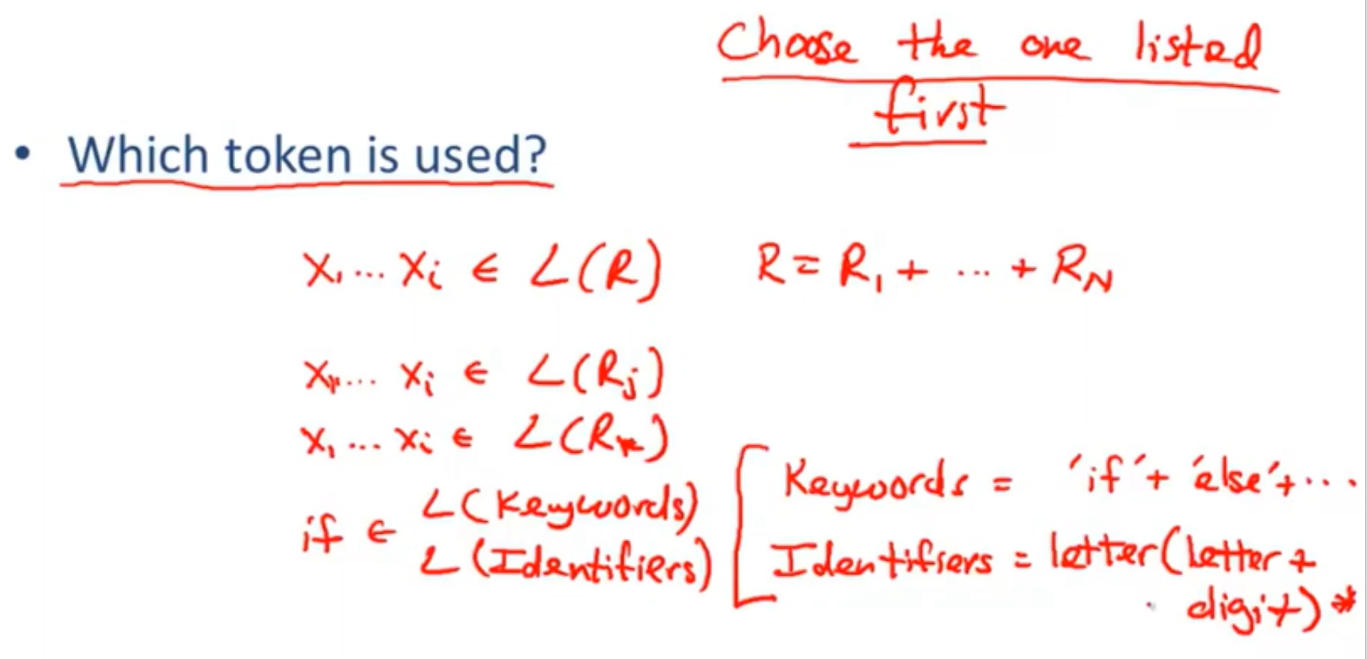 Choose the one listed
first
• Which token is used?
x₁ ... xᵢ ∈ L(R) R = R₁ + ... + R_N
x₁ ... xᵢ ∈ L(Rⱼ)
x₁ ... xᵢ ∈ L(Rₖ)
if ∈ L(Keywords)
L(Identifiers)
Keywords = 'if' + 'else' + ...
Identifiers = letter(letter +
digit)*